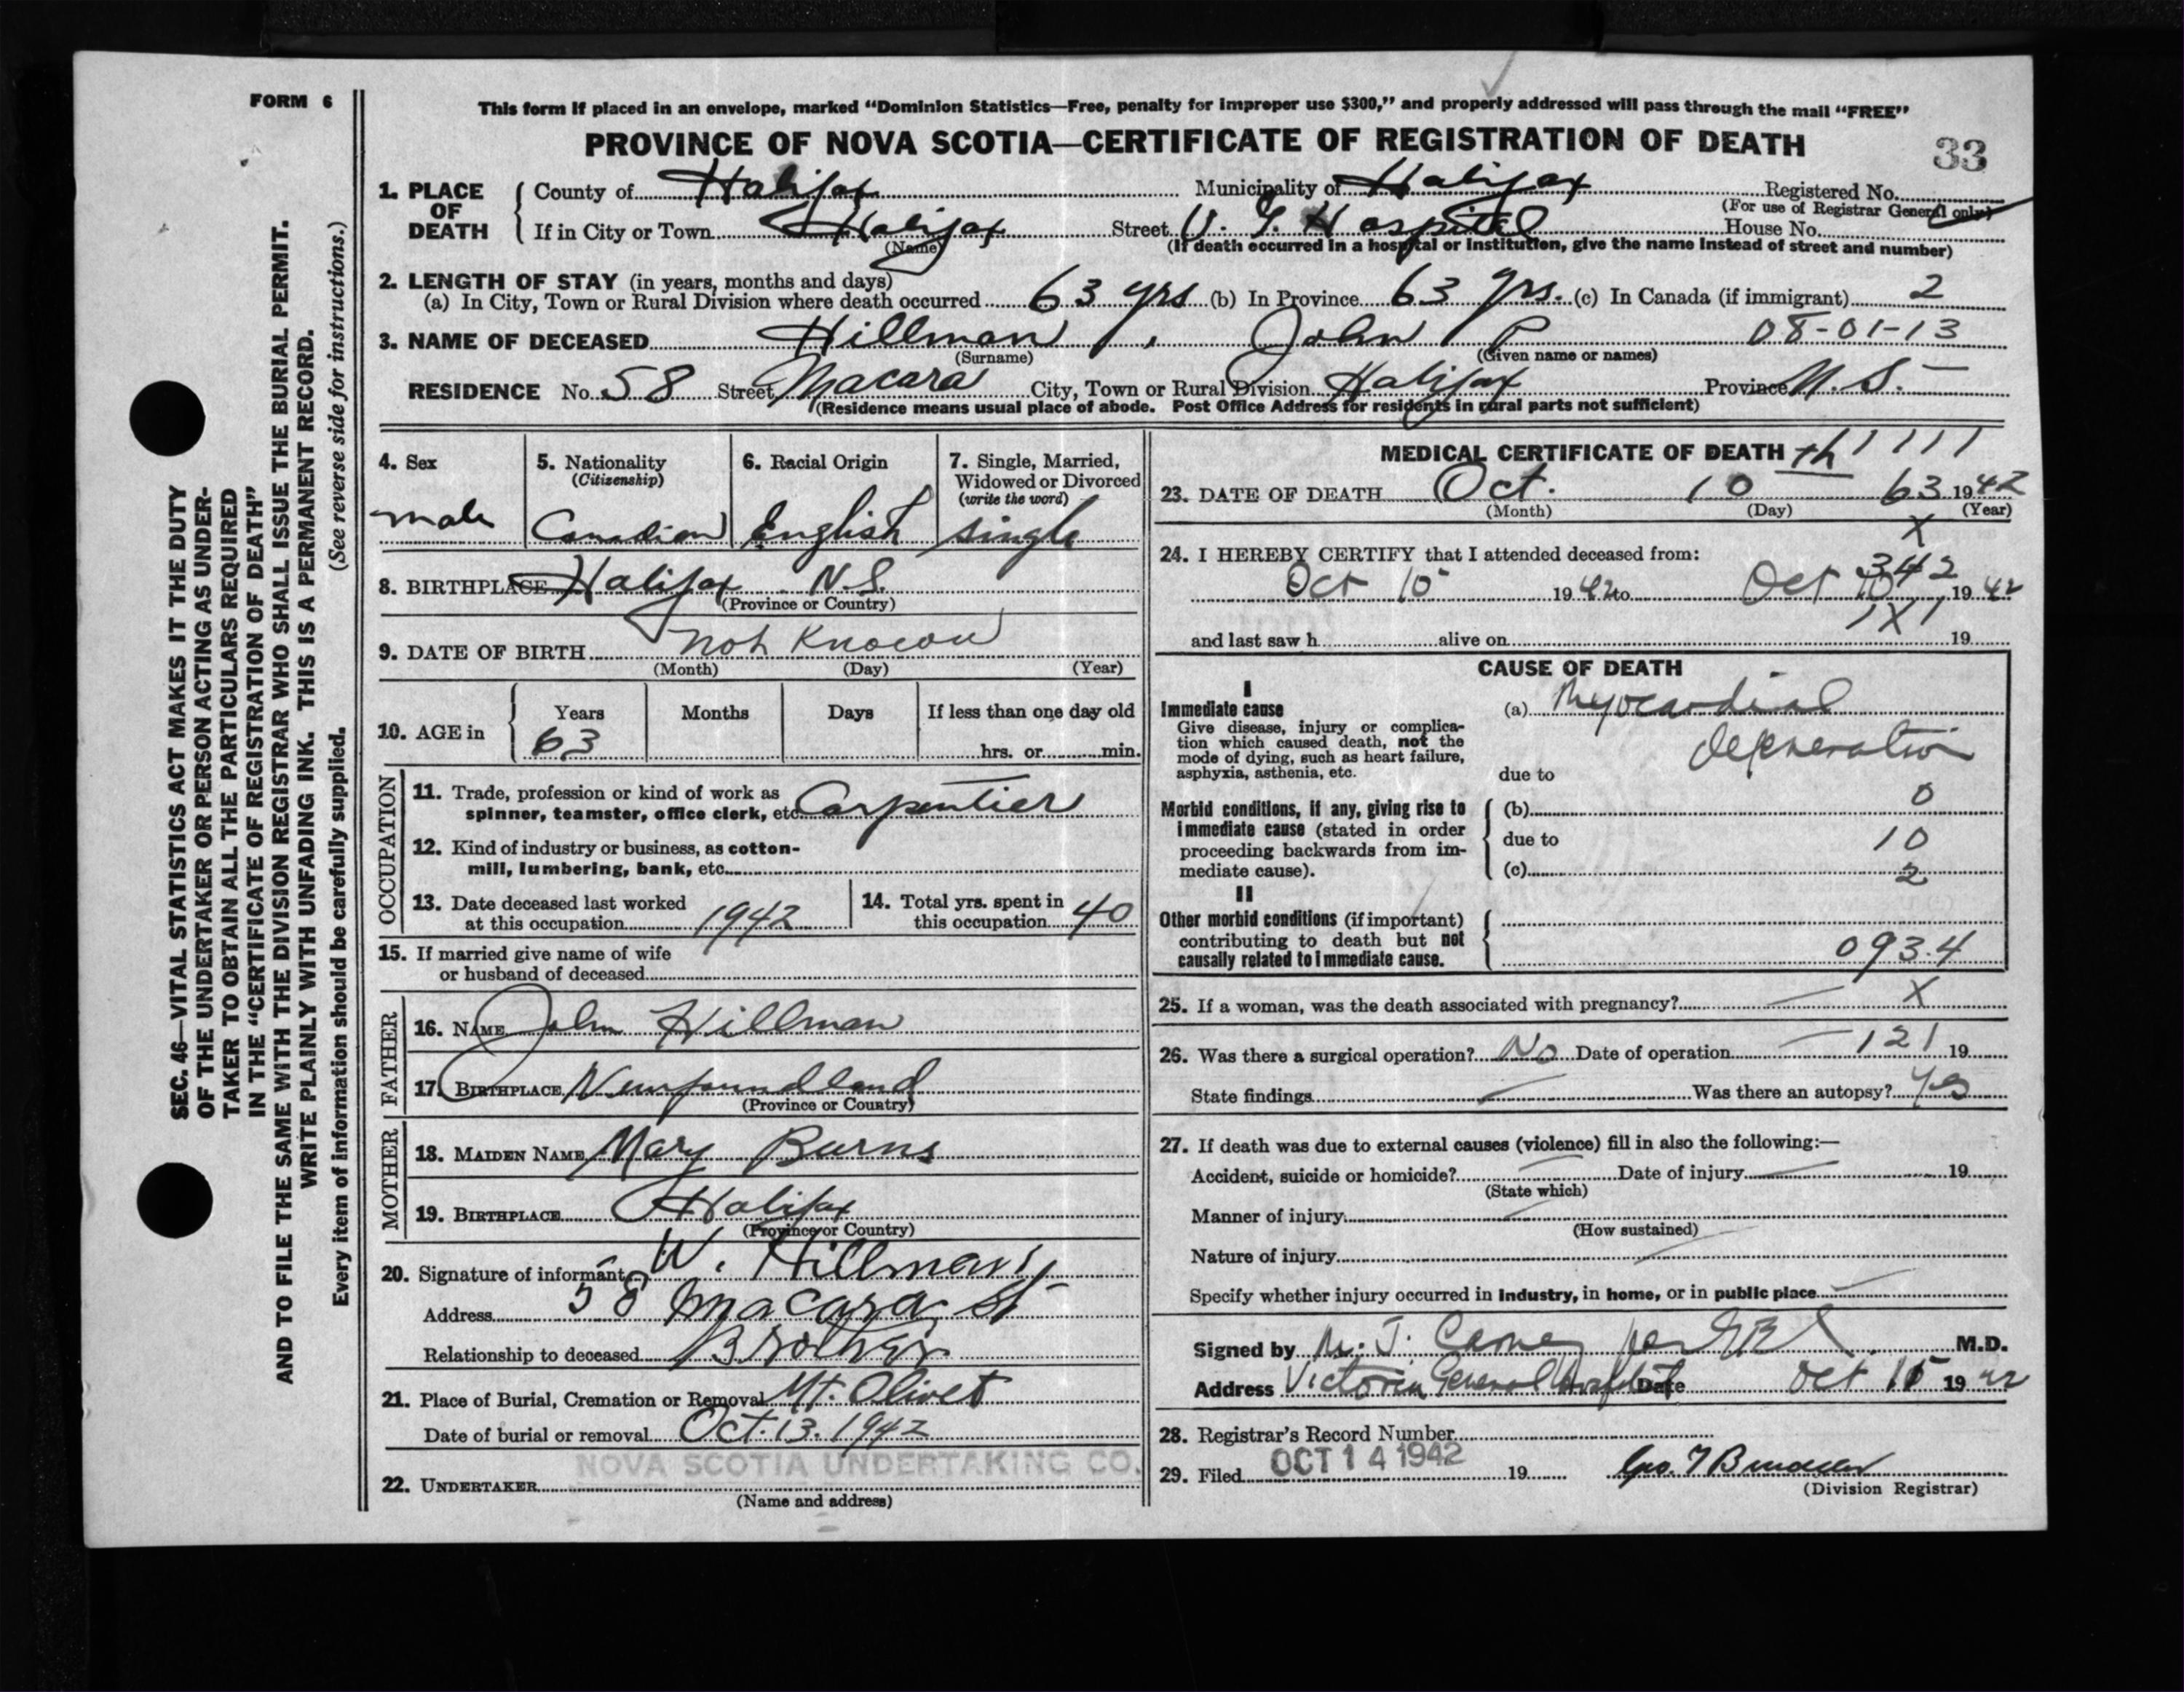 FORM 6
This form if placed in an envelope, marked “Dominion Statistics—Free, penalty for improper use $300,” and properly addressed will pass through the mail “FREE”
PROVINCE OF NOVA SCOTIA—CERTIFICATE OF REGISTRATION OF DEATH
33
1. PLACE OF DEATH County of Halifax Municipality of Halifax Registered No.
(For use of Registrar General only)
If in City or Town Halifax Street V. G. Hospital House No.
(Name) (If death occurred in a hospital or institution, give the name instead of street and number)
2. LENGTH OF STAY (in years, months and days)
(a) In City, Town or Rural Division where death occurred 63 yrs (b) In Province 63 yrs. (c) In Canada (if immigrant) 2
3. NAME OF DECEASED Hillman, John P 08-01-13
(Surname) (Given name or names)
RESIDENCE No. 58 Street Macara City, Town or Rural Division Halifax Province N.S.
(Residence means usual place of abode. Post Office Address for residents in rural parts not sufficient)
4. Sex
male
5. Nationality
(Citizenship)
Canadian
6. Racial Origin
English
7. Single, Married,
Widowed or Divorced
(write the word)
single
8. BIRTHPLACE Halifax N.S.
(Province or Country)
9. DATE OF BIRTH not known
(Month) (Day) (Year)
10. AGE in Years Months Days If less than one day old
63 hrs. or min.
OCCUPATION
11. Trade, profession or kind of work as
spinner, teamster, office clerk, etc. Carpentier
12. Kind of industry or business, as cotton-
mill, lumbering, bank, etc.
13. Date deceased last worked
at this occupation 1942
14. Total yrs. spent in
this occupation 40
15. If married give name of wife
or husband of deceased
FATHER
16. NAME John Hillman
17. BIRTHPLACE Newfoundland
(Province or Country)
MOTHER
18. MAIDEN NAME Mary Burns
19. BIRTHPLACE Halifax
(Province or Country)
20. Signature of informant W. Hillman
Address 58 Macara St
Relationship to deceased Brother
21. Place of Burial, Cremation or Removal Mt. Olivet
Date of burial or removal Oct. 13. 1942
NOVA SCOTIA UNDERTAKING CO.
22. UNDERTAKER
(Name and address)
MEDICAL CERTIFICATE OF DEATH 1111
23. DATE OF DEATH Oct. 10th 63 1942
(Month) (Day) (Year)
X
24. I HEREBY CERTIFY that I attended deceased from:
342
Oct 10 1942 to Oct 10 1942
1X1
and last saw h alive on 19
CAUSE OF DEATH
I
Immediate cause (a) Myocardial
Give disease, injury or complica-
tion which caused death, not the
mode of dying, such as heart failure,
asphyxia, asthenia, etc.
degeneration
due to
Morbid conditions, if any, giving rise to
immediate cause (stated in order
proceeding backwards from im-
mediate cause).
(b) 0
due to 10
(c) 2
II
Other morbid conditions (if important)
contributing to death but not
causally related to immediate cause.
093.4
25. If a woman, was the death associated with pregnancy? — X
26. Was there a surgical operation? No Date of operation — 121 19
State findings — Was there an autopsy? Yes
27. If death was due to external causes (violence) fill in also the following:—
Accident, suicide or homicide? — Date of injury — 19
(State which)
Manner of injury —
(How sustained)
Nature of injury —
Specify whether injury occurred in industry, in home, or in public place —
Signed by M. J. Carney per M.D.
Address Victoria General Hospital Date Oct 1942
28. Registrar's Record Number
29. Filed OCT 14 1942 19 Geo.
(Division Registrar)
SEC. 46—VITAL STATISTICS ACT MAKES IT THE DUTY
OF THE UNDERTAKER OR PERSON ACTING AS UNDER-
TAKER TO OBTAIN ALL THE PARTICULARS REQUIRED
IN THE “CERTIFICATE OF REGISTRATION OF DEATH”
AND TO FILE THE SAME WITH THE DIVISION REGISTRAR WHO SHALL ISSUE THE BURIAL PERMIT.
WRITE PLAINLY WITH UNFADING INK. THIS IS A PERMANENT RECORD.
Every item of information should be carefully supplied. (See reverse side for instructions.)